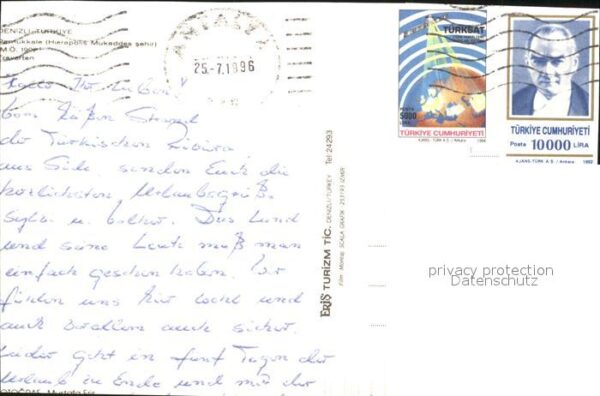 DENIZLI - TÜRKIYE
Pamukkale (Hierapolis Mukaddes şehir)
M.Ö. 190
Traverten
ANTALYA
25.-7.1996
TÜRKSAT
POSTA 5000 LİRA
TÜRKİYE CUMHURİYETİ
AJANS-TÜRK A.Ş. / Ankara 1994
TÜRKİYE CUMHURİYETİ
Posta 10000 LİRA
AJANS-TÜRK A.Ş. / Ankara 1992
Hallo Ihr Lieben!
Vom süßen Strand
der Türkischen Riviera
aus Side, senden Euch die
herzlichsten Urlaubsgrüße
Sylvia u. Das Land
und seine Leute muß man
einfach gesehen haben. Wir
fühlen uns hier wohl und
auch vor allem auch sicher.
Leider geht in fünf Tagen der
Urlaub zu Ende und mit der
FOTOĞRAF: Mustafa
ERİŞ TURİZM TİC. DENIZLI/TURKEY Tel: 24293
Film Montaj: SCALA GRAFİK 25 11 93 İZMİR
privacy protection
Datenschutz